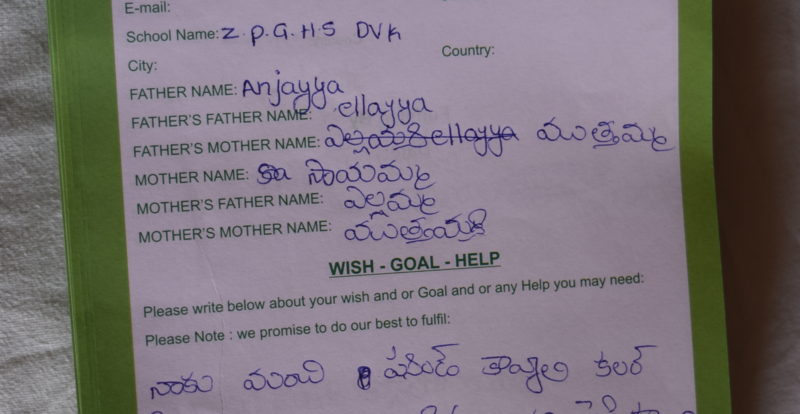 E-mail:
School Name: Z.P.G.H.S DVK
Country:
City:
FATHER NAME: Anjayya
FATHER'S FATHER NAME: ellayya
FATHER'S MOTHER NAME: ellayya ముత్తమ్మ
MOTHER NAME: సాయమ్మ
MOTHER'S FATHER NAME: ఎల్లమ్మ
MOTHER'S MOTHER NAME:
WISH - GOAL - HELP
Please write below about your wish and or Goal and or any Help you may need:
Please Note : we promise to do our best to fulfil:
నాకు మంచి కలర్